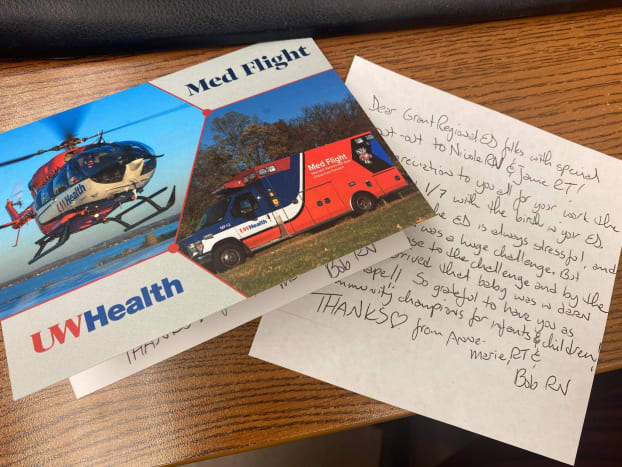 Med Flight
UWHealth
Med Flight
UWHealth
UWHealth
THANKS
Bob RN
Dear Grant Regional ED folks with special
out-out to Nicole RN & Jamie RT!
preciation to you all for your work the
1/7 with the birth in your ED.
the ED is always stressful, and
was a huge challenge. But
se to the challenge and by the
rrived that baby was in darn
hape!! So grateful to have you as
mmunity champions for infants & children,
THANKS♡ from Anne-
Marie, RT &
Bob RN